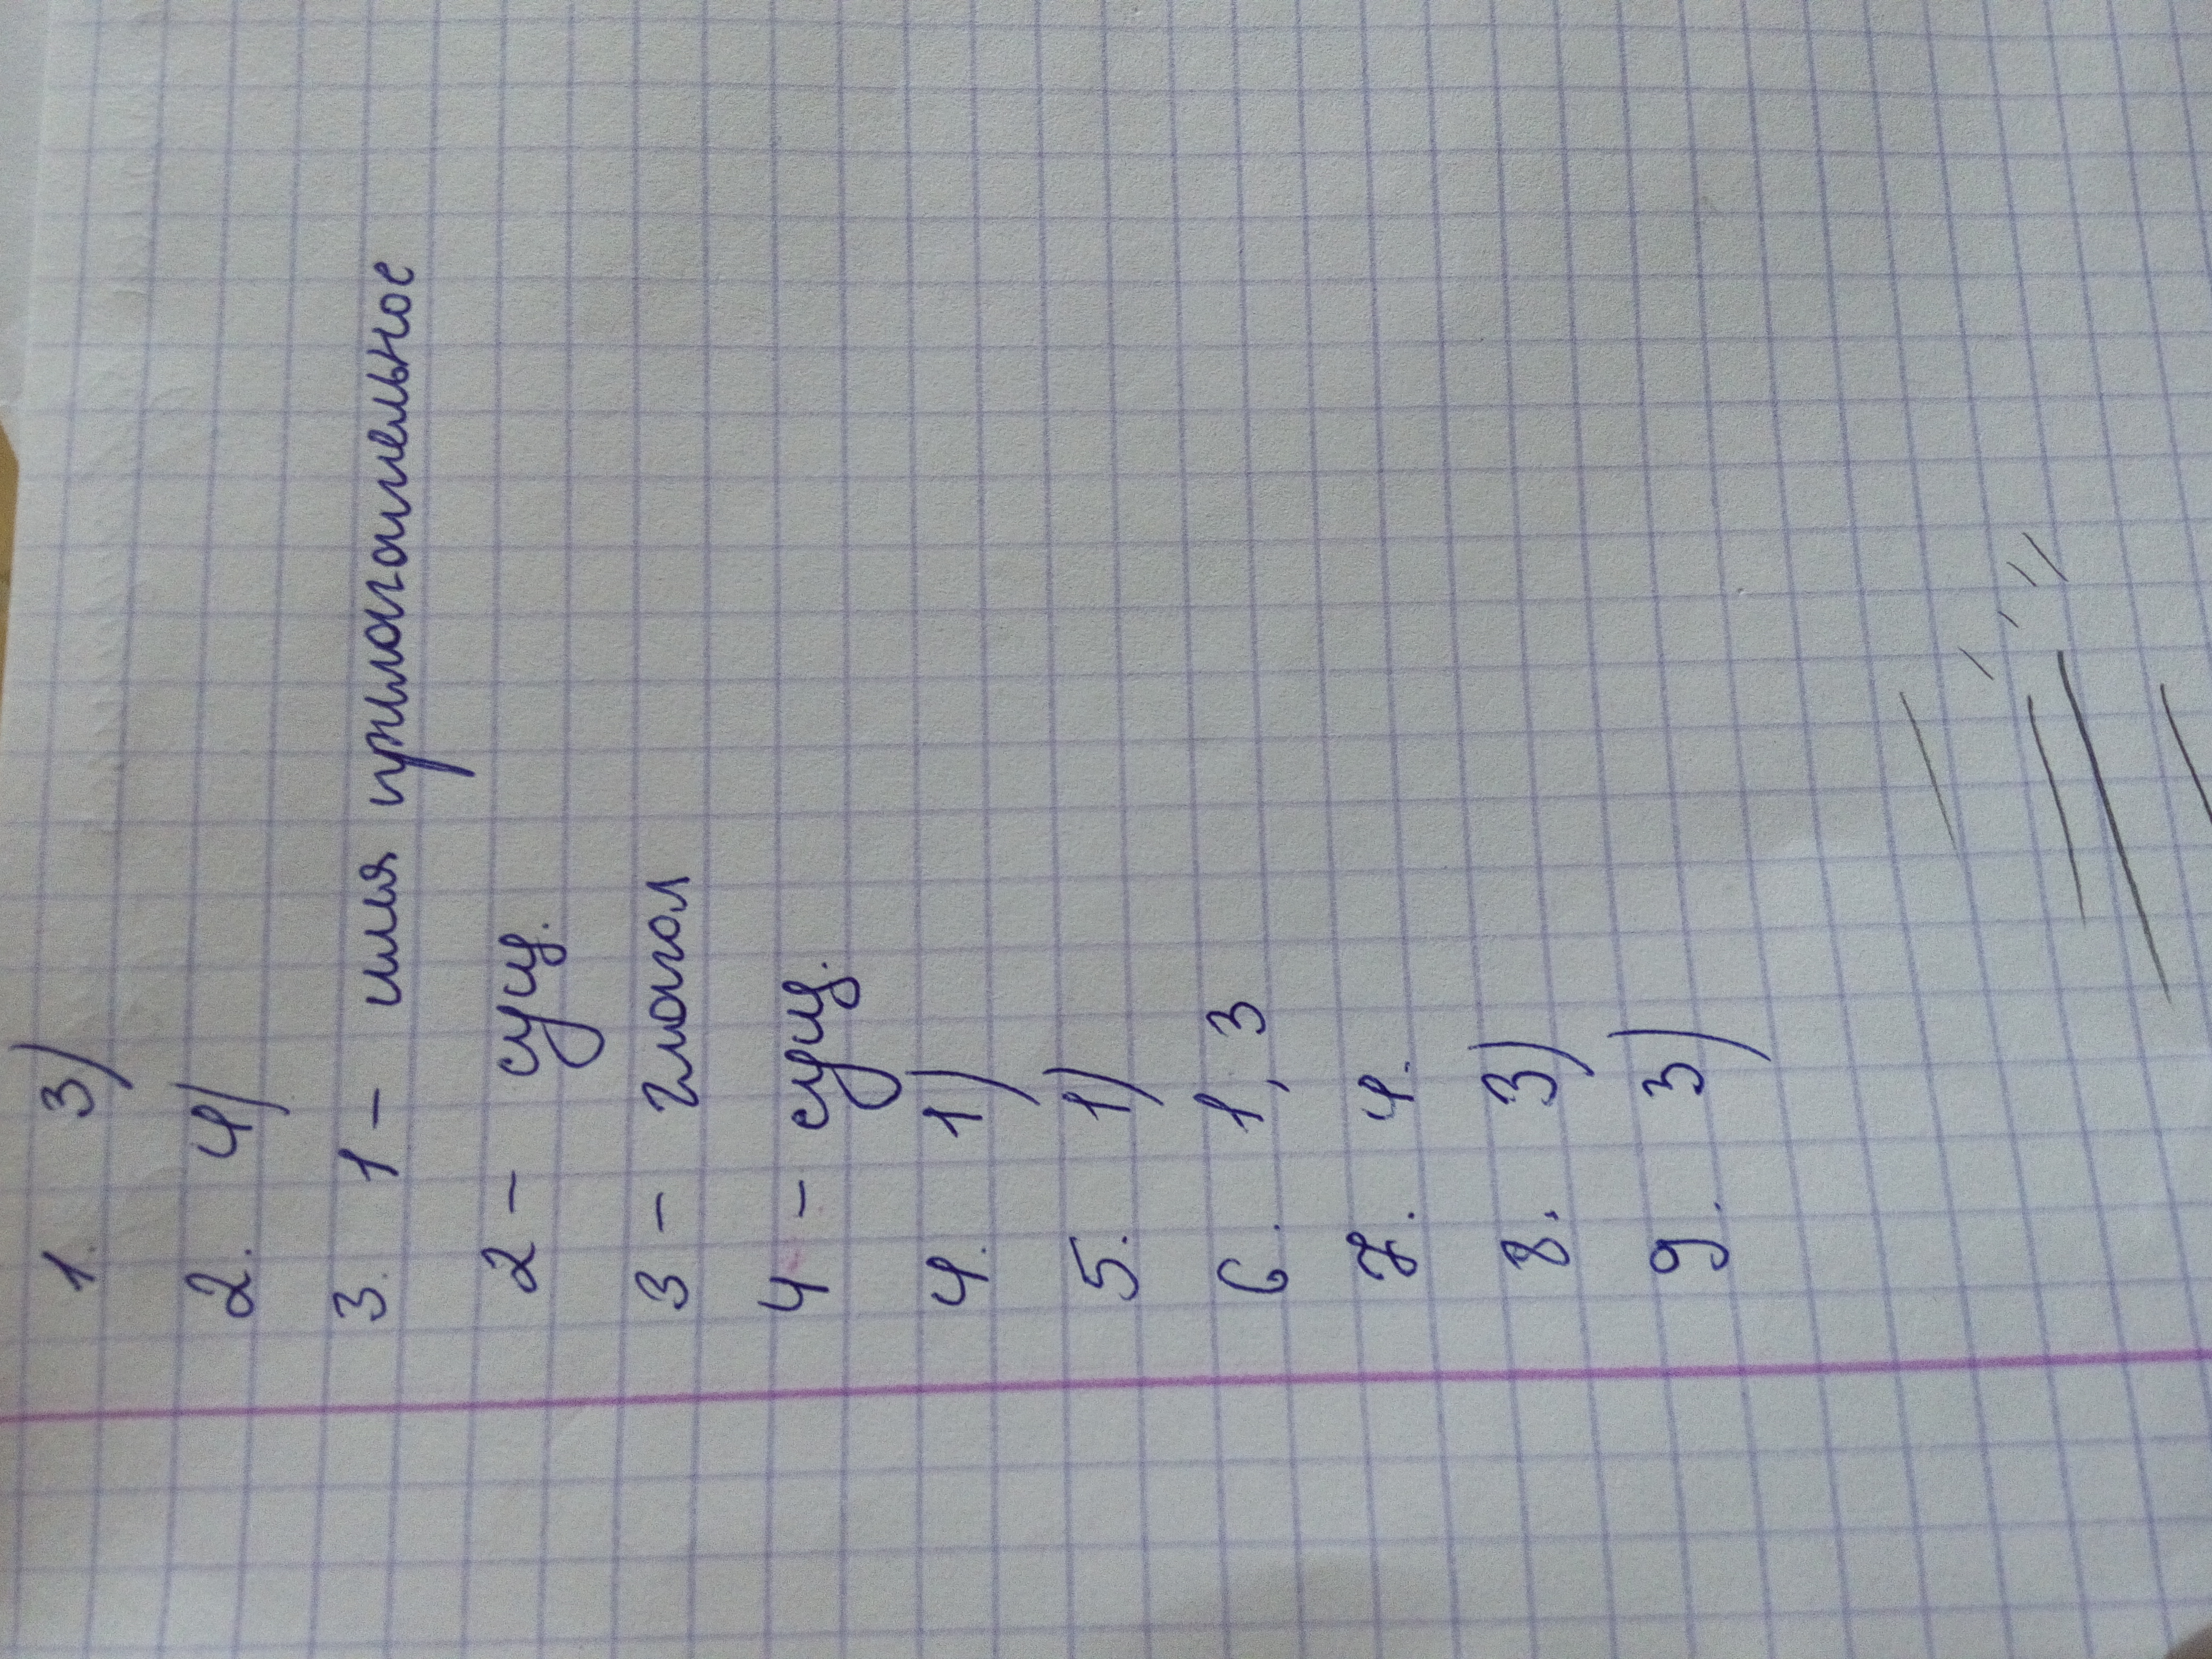 1. 3)
2. 4)
3. 1 - имя прилагательное
2 - сущ.
3 - глагол
4 - сущ.
4. 1)
5. 1)
6. 1, 3
7. 4.
8. 3)
9. 3)